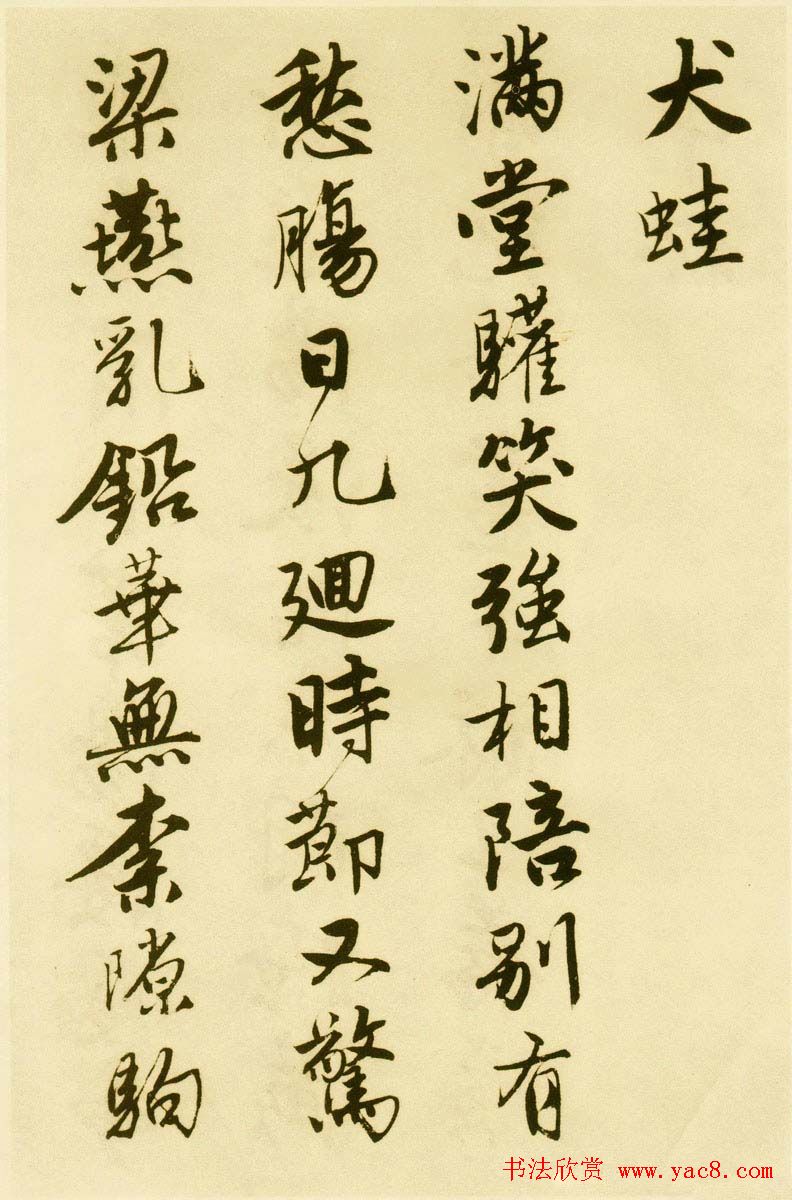 犬蛙
滿堂驩笑強相陪別有
愁腸日九廻時莭又驚
梁燕乳鉛華無柰隙駒
书法欣赏 www.yac8.com